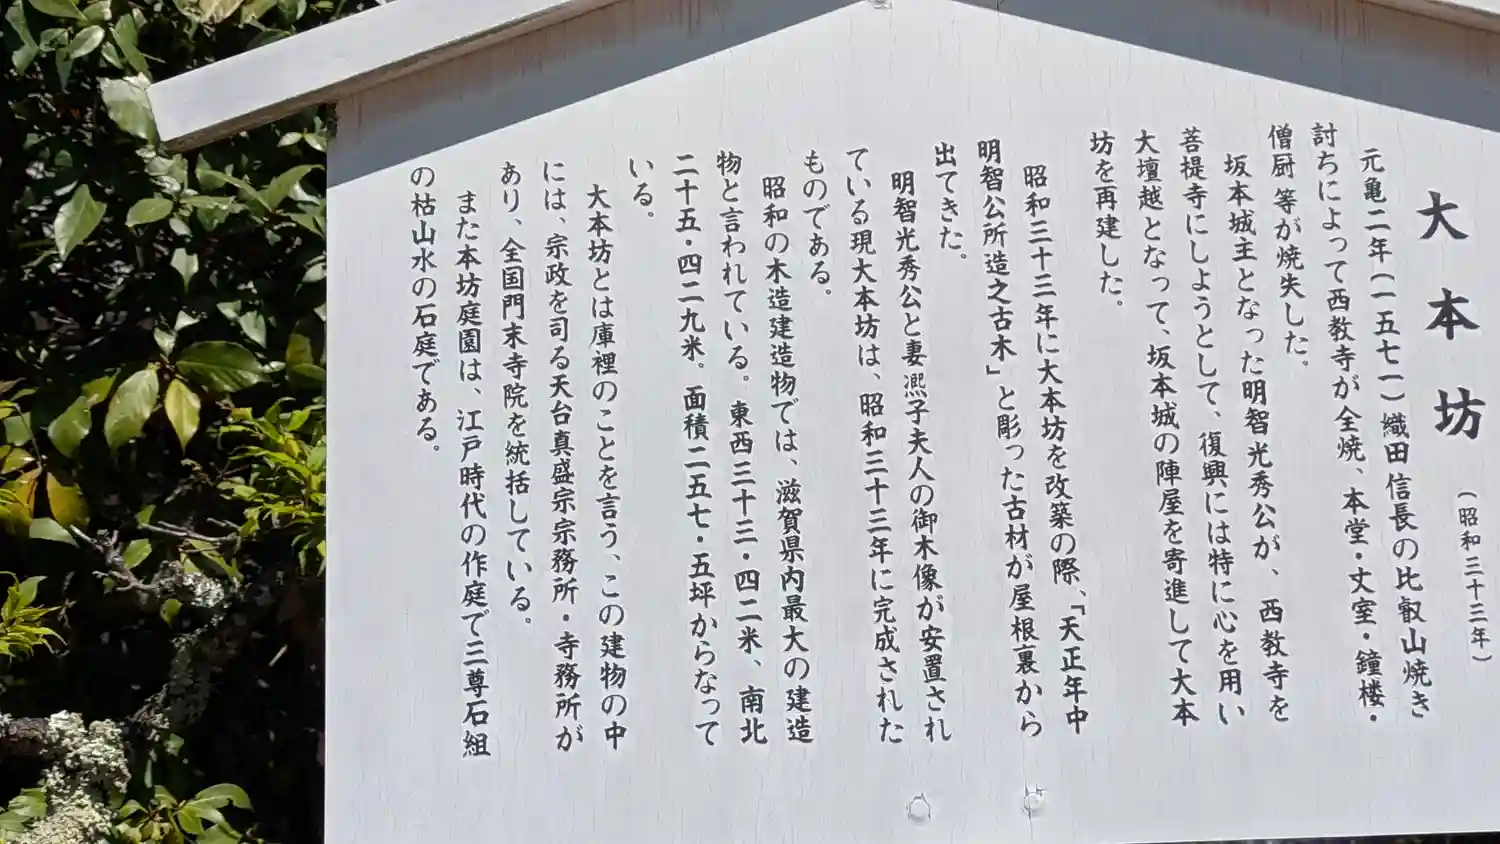 大本坊
(昭和三十三年)
元亀二年(一五七一)織田信長の比叡山焼き
討ちによって西教寺が全焼、本堂・丈室・鐘楼・
僧厨等が焼失した。
坂本城主となった明智光秀公が、西教寺を
菩提寺にしようとして、復興には特に心を用い
大壇越となって、坂本城の陣屋を寄進して大本
坊を再建した。
昭和三十三年に大本坊を改築の際、「天正年中
明智公所造之古木」と彫った古材が屋根裏から
出てきた。
明智光秀公と妻凞子夫人の御木像が安置され
ている現大本坊は、昭和三十三年に完成された
ものである。
昭和の木造建造物では、滋賀県内最大の建造
物と言われている。東西三十三・四二米、南北
二十五・四二九米。面積二五七・五坪からなって
いる。
大本坊とは庫裡のことを言う、この建物の中
には、宗政を司る天台真盛宗宗務所・寺務所が
あり、全国門末寺院を統括している。
また本坊庭園は、江戸時代の作庭で三尊石組
の枯山水の石庭である。